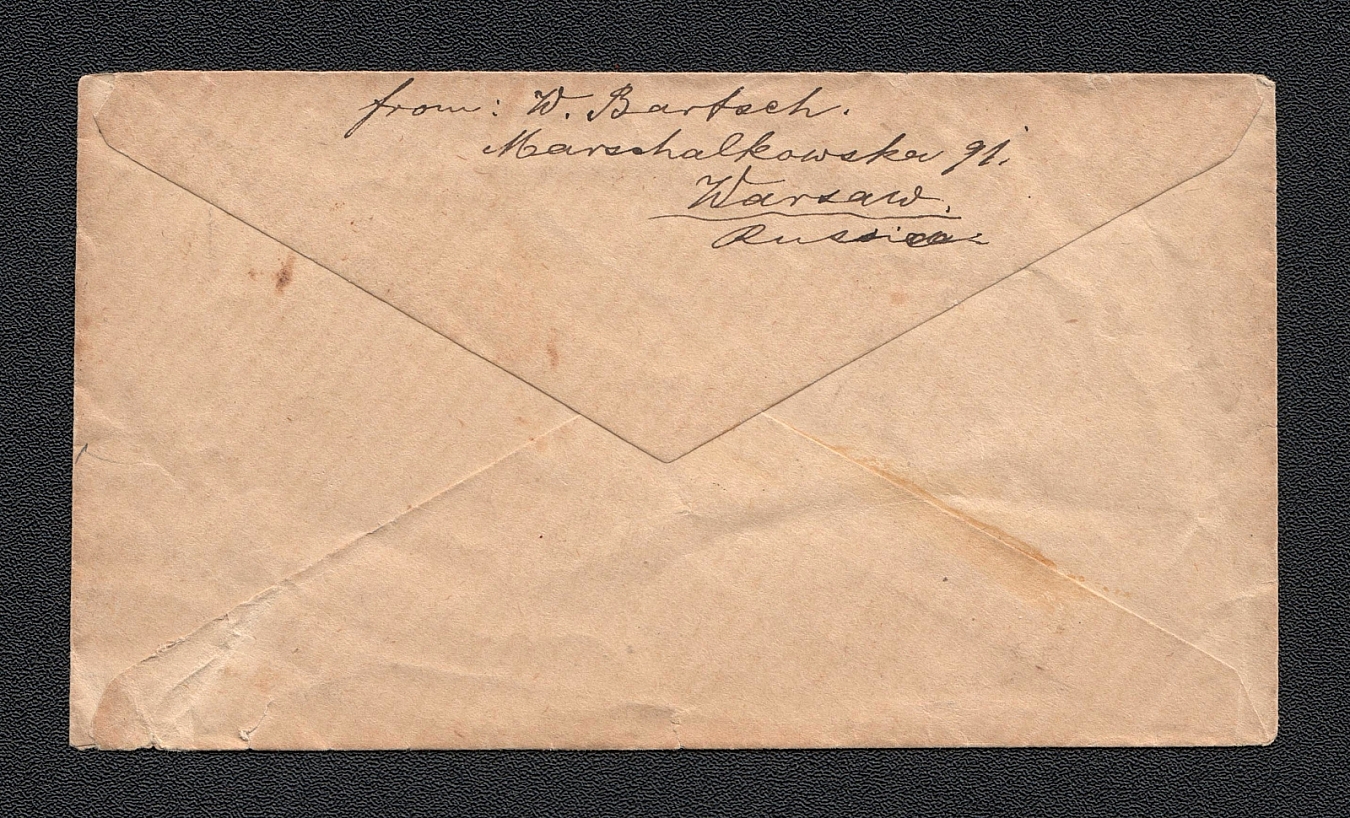 from: W. Bartsch.
Marschalkowska 91.
Warsaw.
Russia